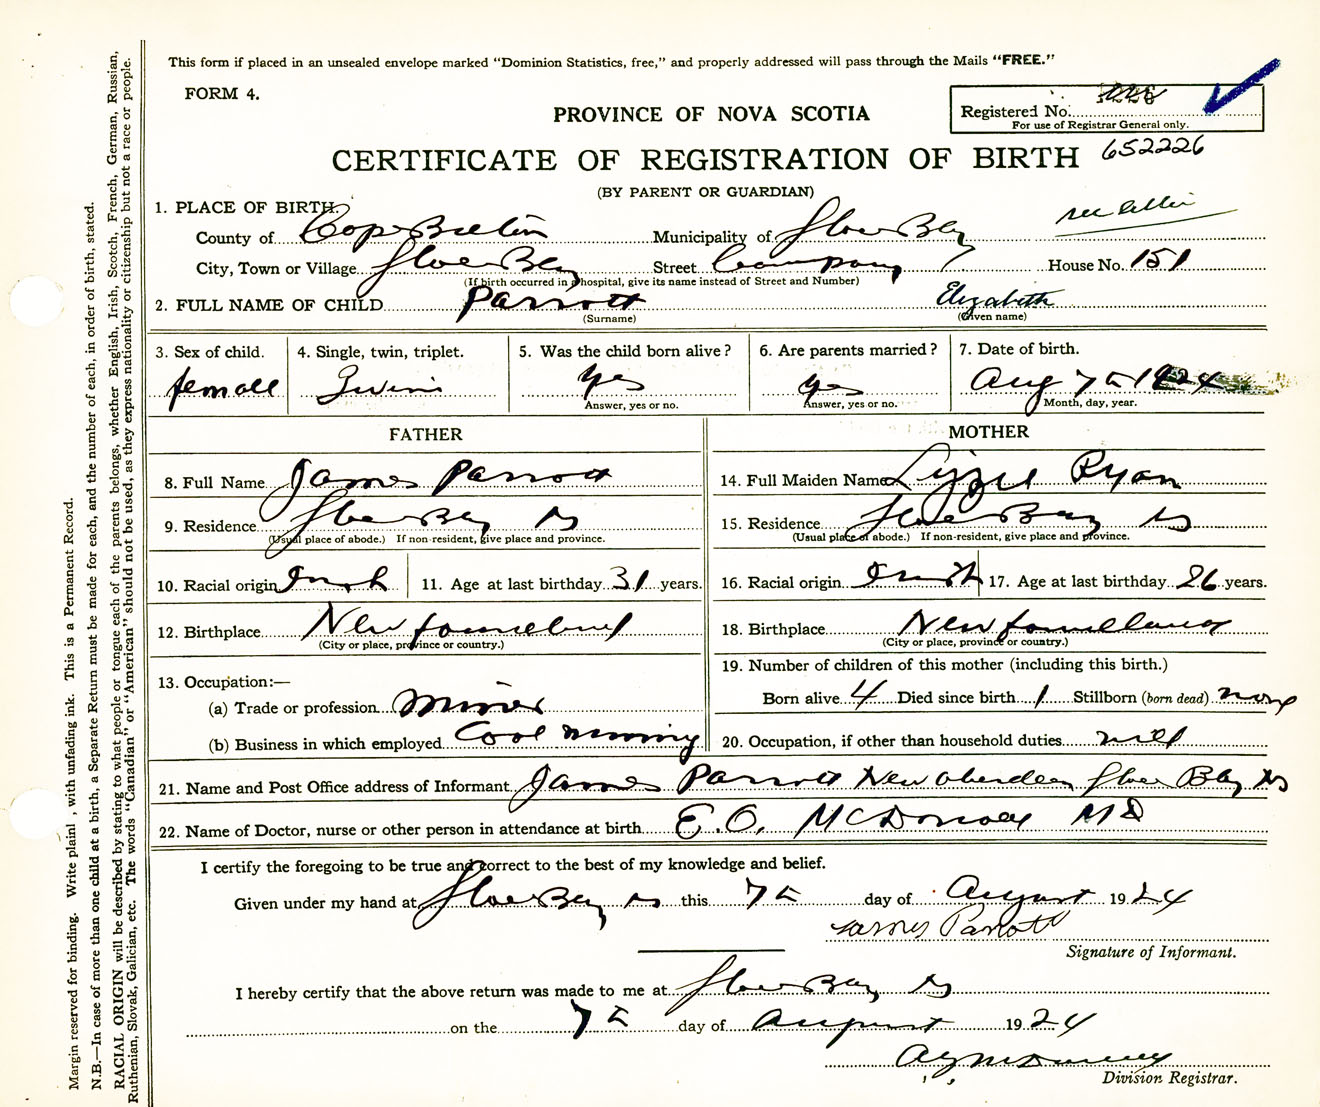 This form if placed in an unsealed envelope marked "Dominion Statistics, free," and properly addressed will pass through the Mails "FREE."
FORM 4.
PROVINCE OF NOVA SCOTIA
Registered No.
For use of Registrar General only.
CERTIFICATE OF REGISTRATION OF BIRTH 652226
(BY PARENT OR GUARDIAN)
1. PLACE OF BIRTH.
see letter
County of Cape Breton Municipality of Glace Bay
City, Town or Village Glace Bay Street Company House No. 151
(If birth occurred in a hospital, give its name instead of Street and Number)
2. FULL NAME OF CHILD Parrott Elizabeth
(Surname) (Given name)
3. Sex of child. 4. Single, twin, triplet. 5. Was the child born alive? 6. Are parents married? 7. Date of birth.
female Twin yes yes Aug 7th 1924
Answer, yes or no. Answer, yes or no. Month, day, year.
FATHER MOTHER
8. Full Name James Parrott 14. Full Maiden Name Lizzie Ryan
9. Residence Glace Bay NS 15. Residence Glace Bay NS
(Usual place of abode.) If non-resident, give place and province. (Usual place of abode.) If non-resident, give place and province.
10. Racial origin Irish 11. Age at last birthday 31 years. 16. Racial origin Irish 17. Age at last birthday 26 years.
12. Birthplace Newfoundland 18. Birthplace Newfoundland
(City or place, province or country.) (City or place, province or country.)
19. Number of children of this mother (including this birth.)
13. Occupation:—
(a) Trade or profession Miner Born alive 4 Died since birth 1 Stillborn (born dead) none
(b) Business in which employed Coal Mining 20. Occupation, if other than household duties
21. Name and Post Office address of Informant James Parrott New Aberdeen Glace Bay NS
22. Name of Doctor, nurse or other person in attendance at birth E. O. McDonald MD
I certify the foregoing to be true and correct to the best of my knowledge and belief.
Given under my hand at Glace Bay NS this 7th day of August 1924
James Parrott
Signature of Informant.
I hereby certify that the above return was made to me at Glace Bay NS
on the 7th day of August 1924
Division Registrar.
Margin reserved for binding. Write plainl , with unfading ink. This is a Permanent Record.
N.B.—In case of more than one child at a birth, a Separate Return must be made for each, and the number of each, in order of birth, stated.
RACIAL ORIGIN will be described by stating to what people or tongue each of the parents belongs, whether English, Irish, Scotch, French, German, Russian,
Ruthenian, Slovak, Galician, etc. The words "Canadian" or "American" should not be used, as they express nationality or citizenship but not a race or people.